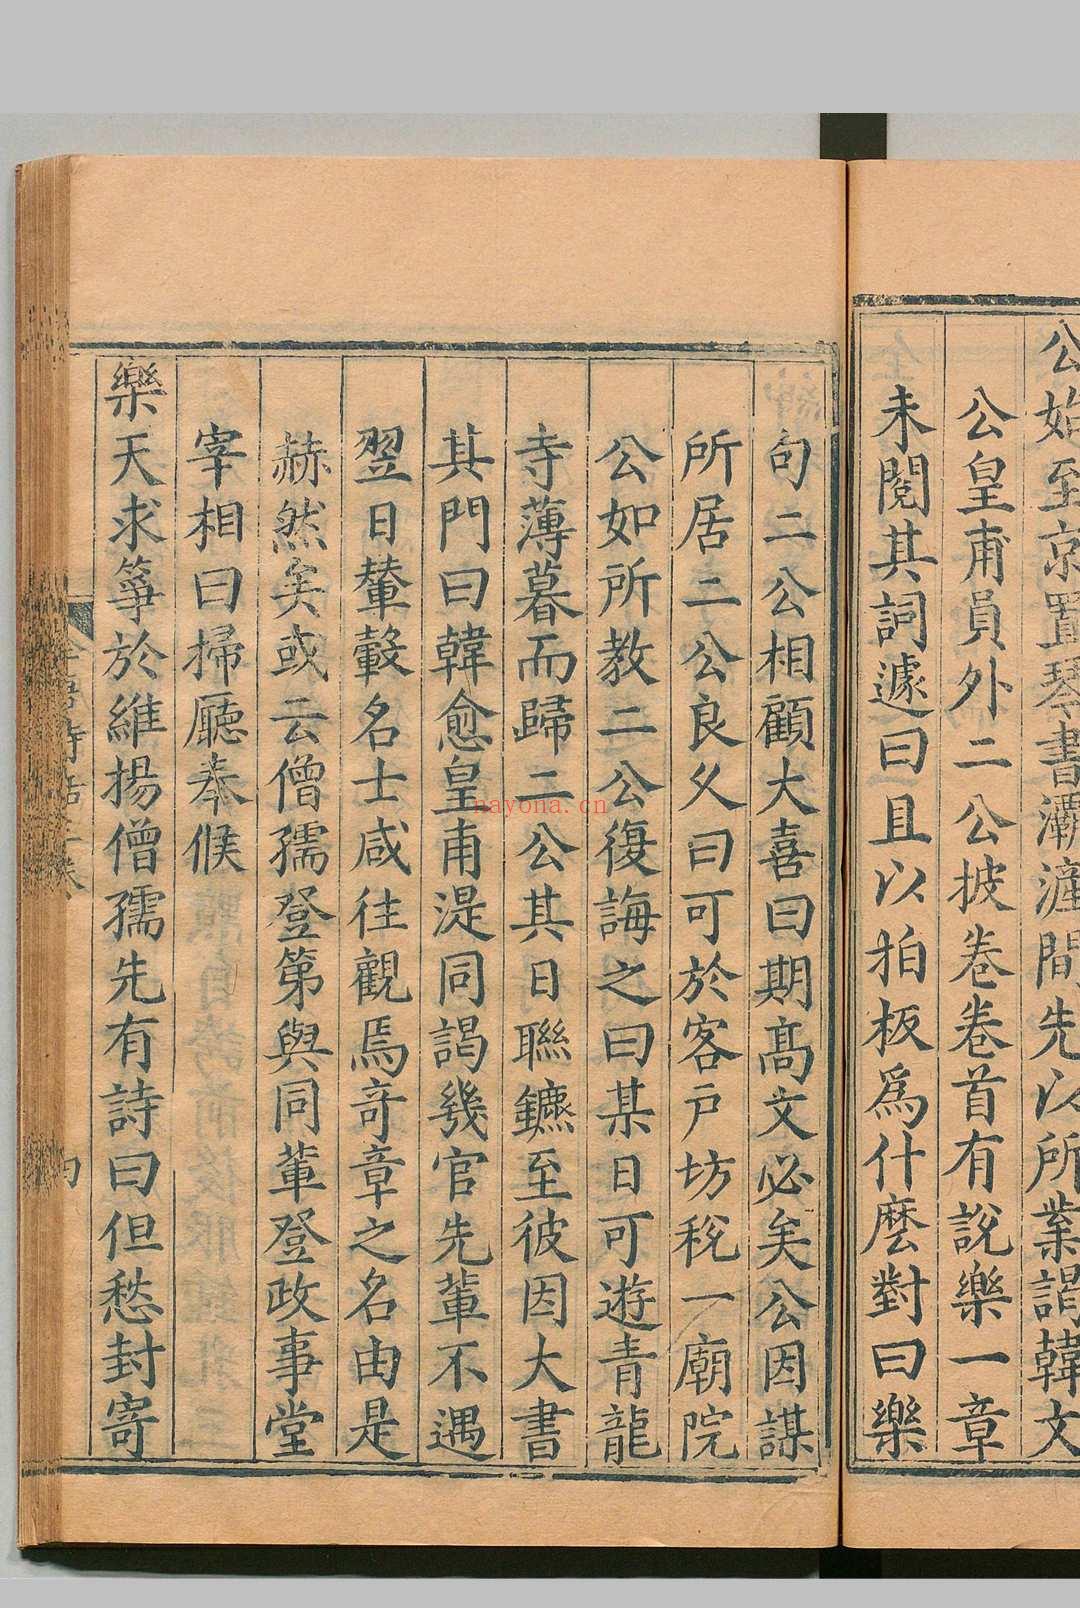 公始至京置琴書灞滻間先以所業謁韓文
公皇甫員外二公披卷卷首有說樂一章
未閱其詞遽曰且以拍板爲什麽對曰樂
句二公相顧大喜曰期高文必矣公因謀
所居二公良久曰可於客戶坊稅一廟院
公如所教二公復誨之曰某日可遊青龍
寺薄暮而歸二公其日聯鑣至彼因大書
其門曰韓愈皇甫湜同謁幾官先輩不遇
翌日輦轂名士咸往觀焉竒章之名由是
赫然矣或云僧孺登第與同輩登政事堂
宰相曰掃廳奉候
樂天求箏於維揚僧孺先有詩曰但愁封寄
nayona.cn